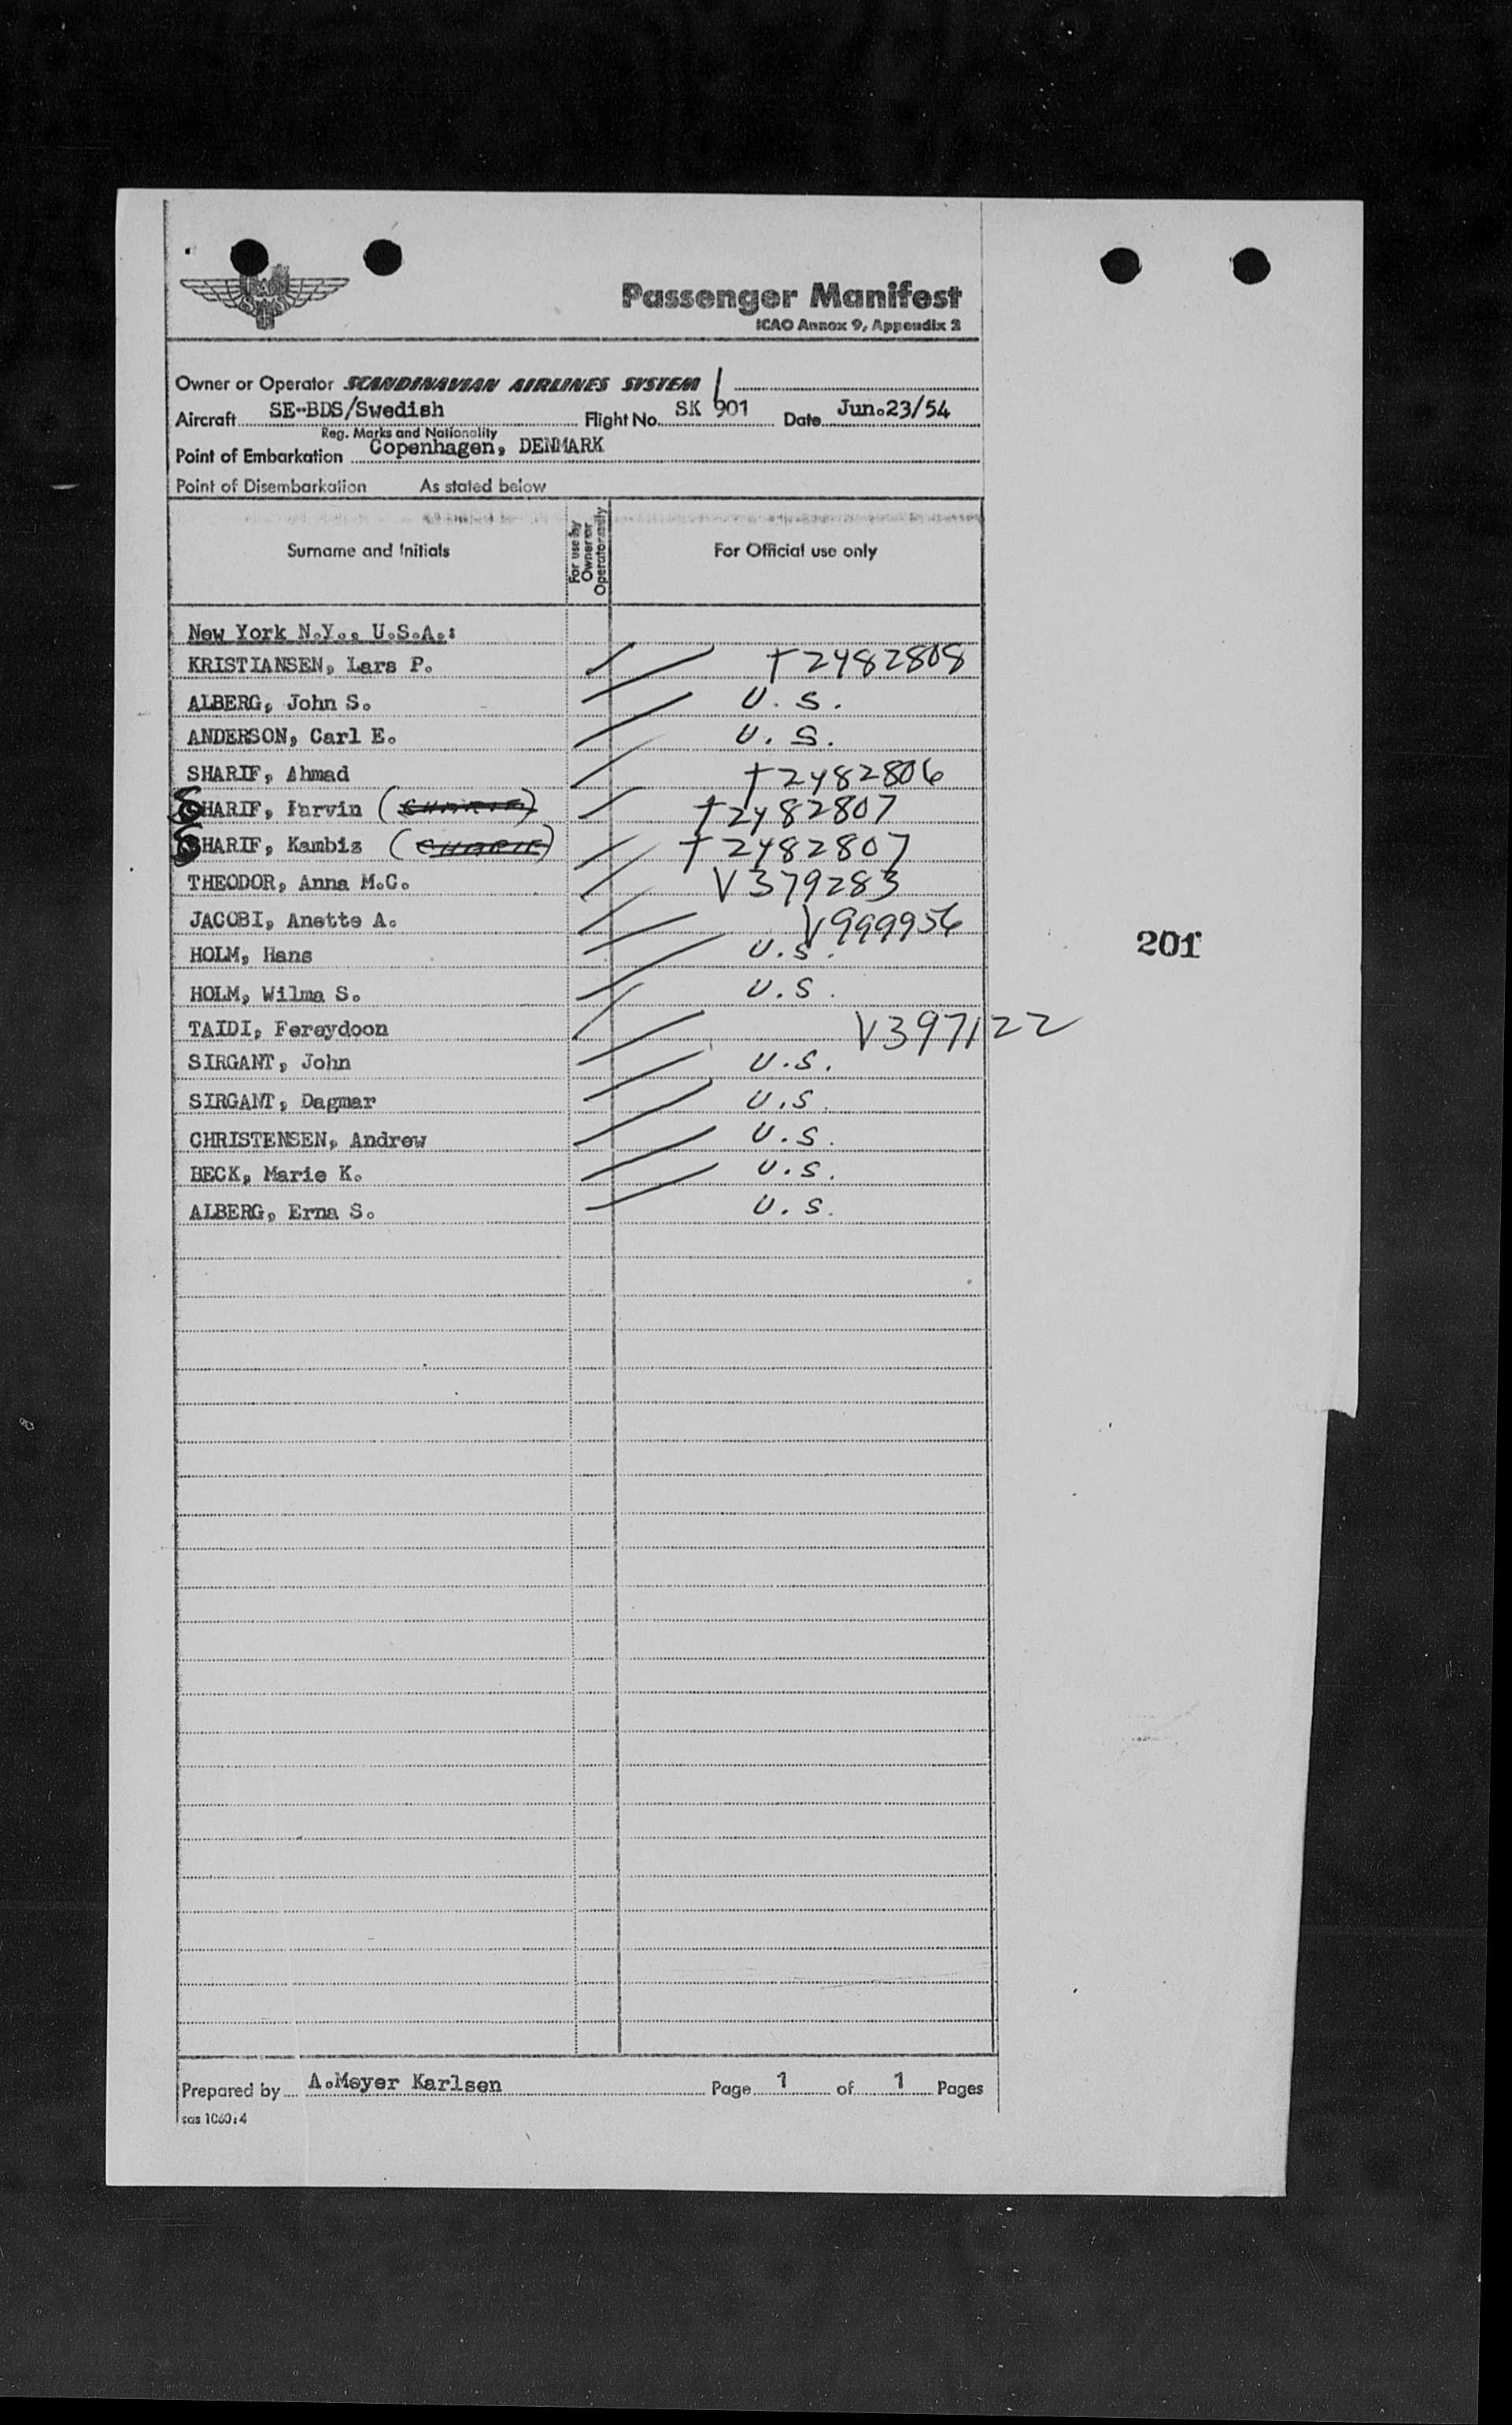 Passenger Manifest
ICAO Annex 9, Appendix 2
Owner or Operator SCANDINAVIAN AIRLINES SYSTEM
Aircraft SE-BDS/Swedish Flight No. SK 901 Date Jun.23/54
Reg. Marks and Nationality
Point of Embarkation Copenhagen, DENMARK
Point of Disembarkation As stated below
Surname and Initials For use by Owner or Operator only For Official use only
New York N.Y., U.S.A.:
KRISTIANSEN, Lars P. T2482808
ALBERG, John S. U.S.
ANDERSON, Carl E. U.S.
SHARIF, Ahmad T2482806
SHARIF, Parvin (SHARIF) T2482807
SHARIF, Kambiz (SHARIF) T2482807
THEODOR, Anna M.C. V379283
JACOBI, Anette A. V999956
HOLM, Hans U.S.
HOLM, Wilma S. U.S.
TAIDI, Fereydoon V397122
SIRGANT, John U.S.
SIRGANT, Dagmar U.S.
CHRISTENSEN, Andrew U.S.
BECK, Marie K. U.S.
ALBERG, Erna S. U.S.
201
Prepared by A.Meyer Karlsen Page 1 of 1 Pages
sas 1060:4